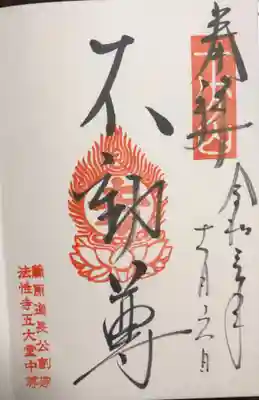 奉拝
令和三年
十一月六日
不動尊
藤原道長公創建
法性寺五大堂中尊